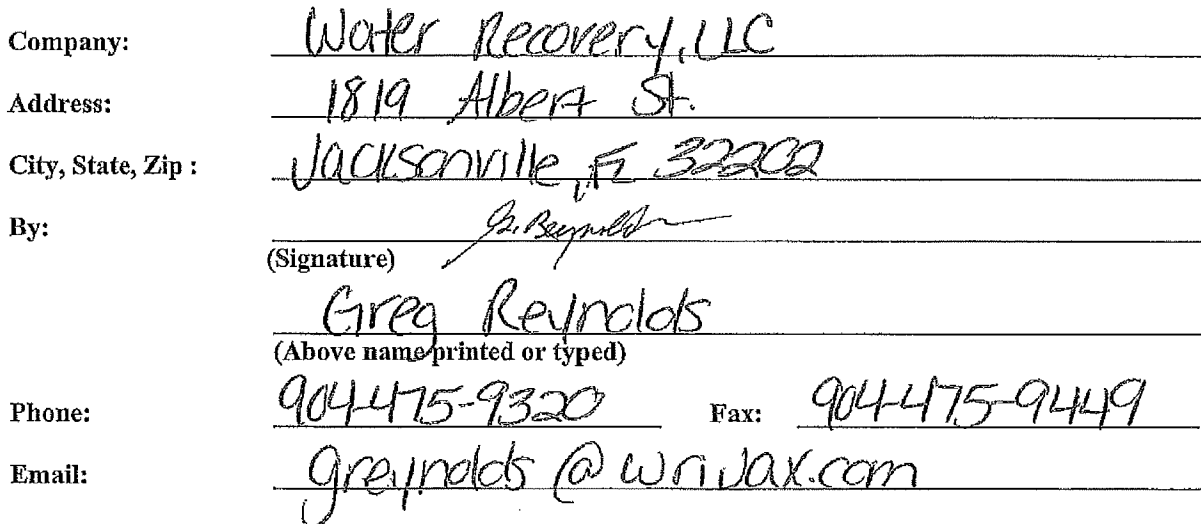 Company: Water Recovery, LLC
Address: 1819 Albert St.
City, State, Zip : Jacksonville, FL 32202
By: G. Reynolds
(Signature)
Greg Reynolds
(Above name printed or typed)
Phone: 904-475-9320 Fax: 904-475-9449
Email: greynolds@wrijax.com